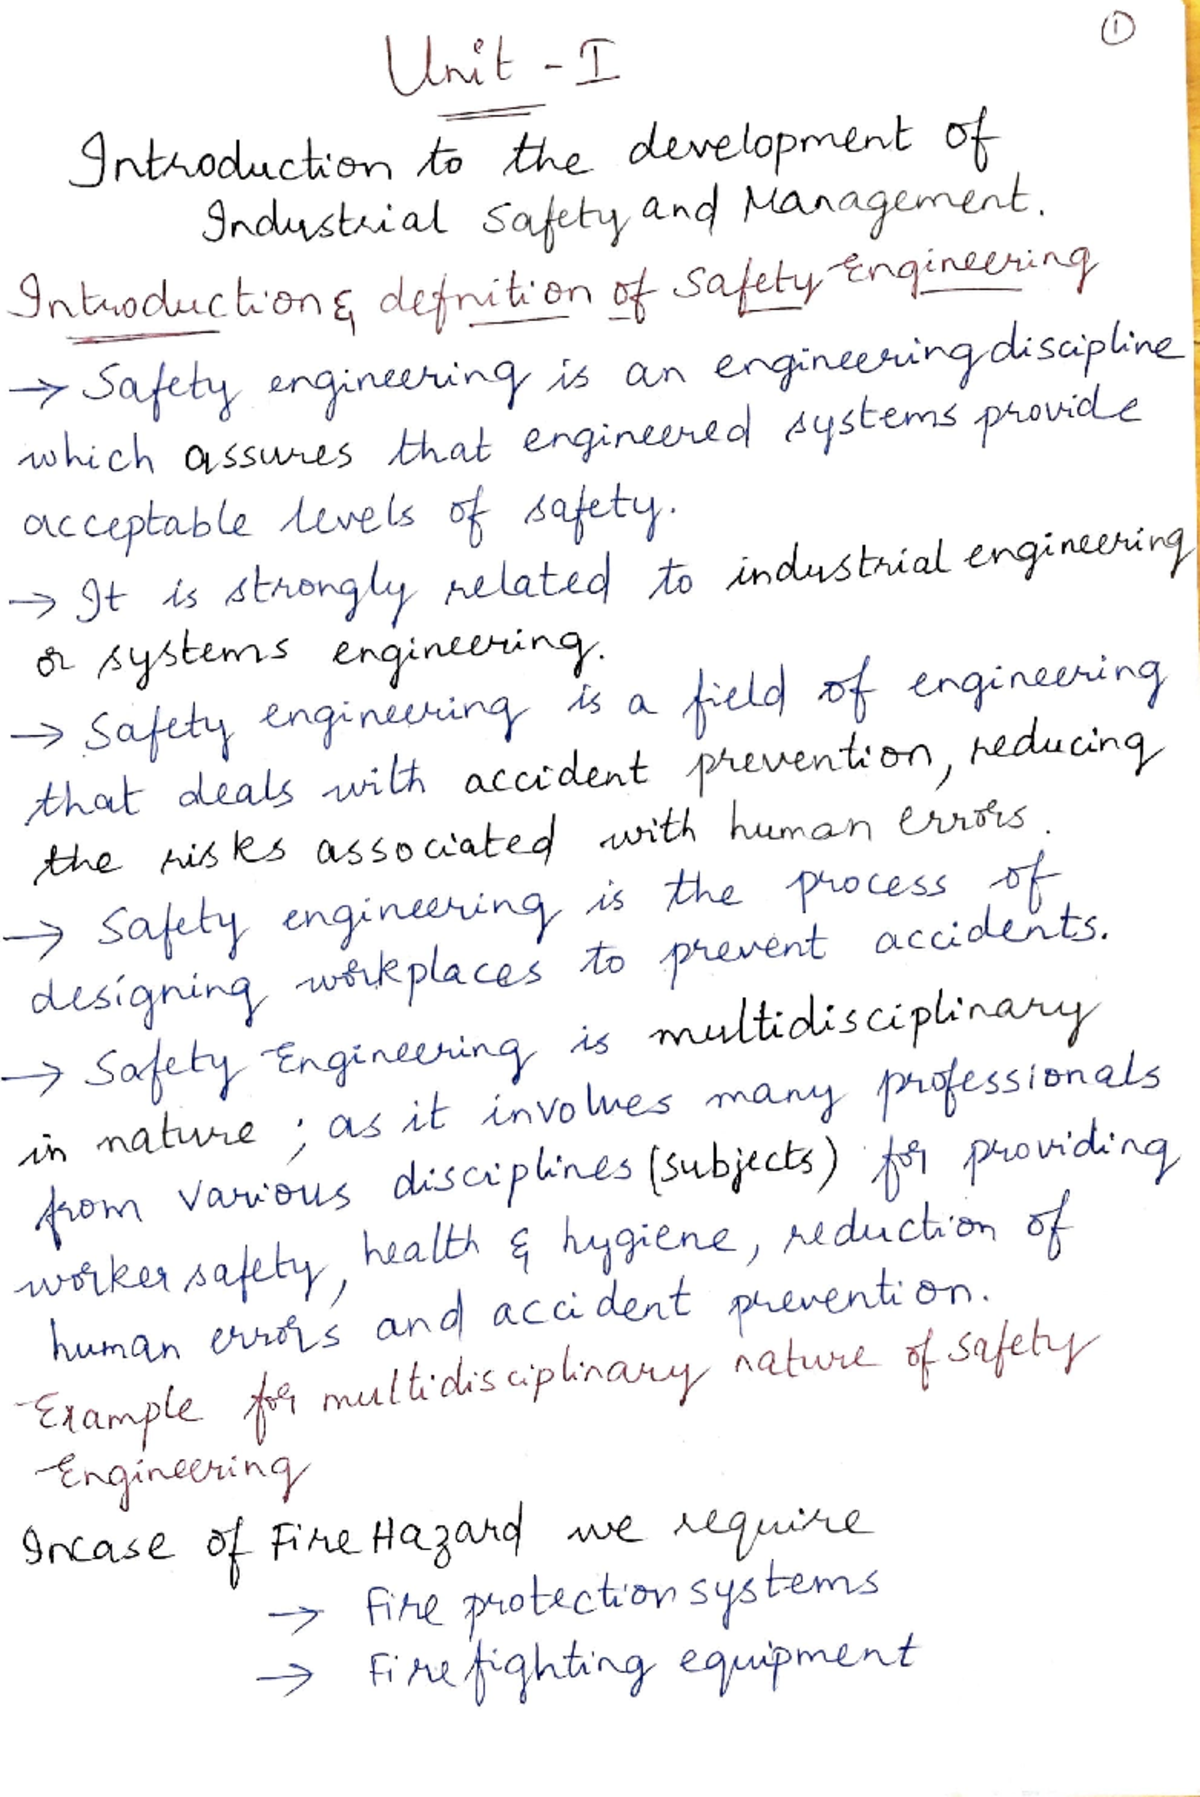 ①
Unit - I
Introduction to the development of
Industrial Safety and Management.
Introduction & defnition of Safety Engineering
→ Safety engineering is an engineering discipline
which assures that engineered systems provide
acceptable levels of safety.
→ It is strongly related to industrial engineering
or systems engineering.
→ Safety engineering is a field of engineering
that deals with accident prevention, reducing
the risks associated with human errors.
→ Safety engineering is the process of
designing workplaces to prevent accidents.
→ Safety Engineering is multidisciplinary
in nature ; as it involves many professionals
from various disciplines (subjects) for providing
worker safety, health & hygiene, reduction of
human errors and accident prevention.
Example for multidisciplinary nature of safety
Engineering
Incase of Fire Hazard we require
→ Fire protection systems
→ Fire fighting equipment